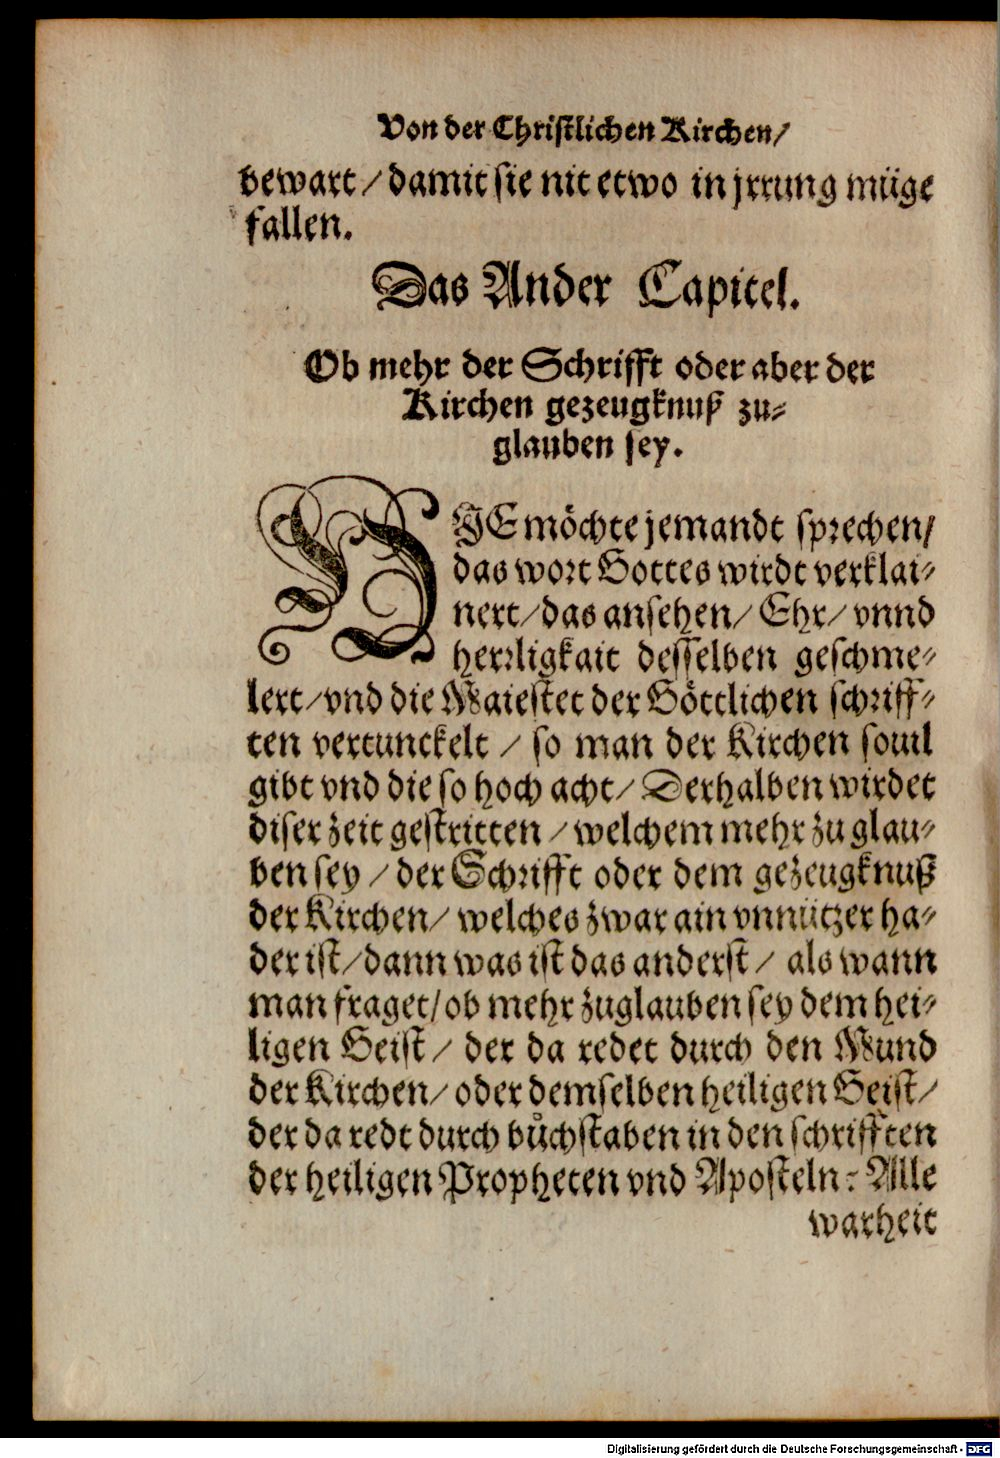 Von der Christlichen Kirchen/
bewart / damit sie nit etwo in jrrung müge
fallen.
Das Ander Capitel.
Ob mehr der Schrifft oder aber der
Kirchen gezeugknuß zu-
glauben sey.
HIE möchte jemandt sprechen/
das wort Gottes wirdt verklai-
nert/das ansehen/ Ehr/ vnnd
herrligkait desselben geschme-
lert/vnd die Maiestet der Göttlichen schriff-
ten vertunckelt / so man der Kirchen souil
gibt vnd die so hoch acht/ Derhalben wirdet
diser zeit gestritten / welchem mehr zu glau-
ben sey / der Schrifft oder dem gezeugknuß
der Kirchen/ welches zwar ain vnnützer ha-
der ist/dann was ist das anderst/ als wann
man fraget/ob mehr zuglauben sey dem hei-
ligen Geist/ der da redet durch den Mund
der Kirchen/ oder demselben heiligen Geist/
der da redt durch bůchstaben in den schrifften
der heiligen Propheten vnd Aposteln: Alle
warheit
Digitalisierung gefördert durch die Deutsche Forschungsgemeinschaft - DFG